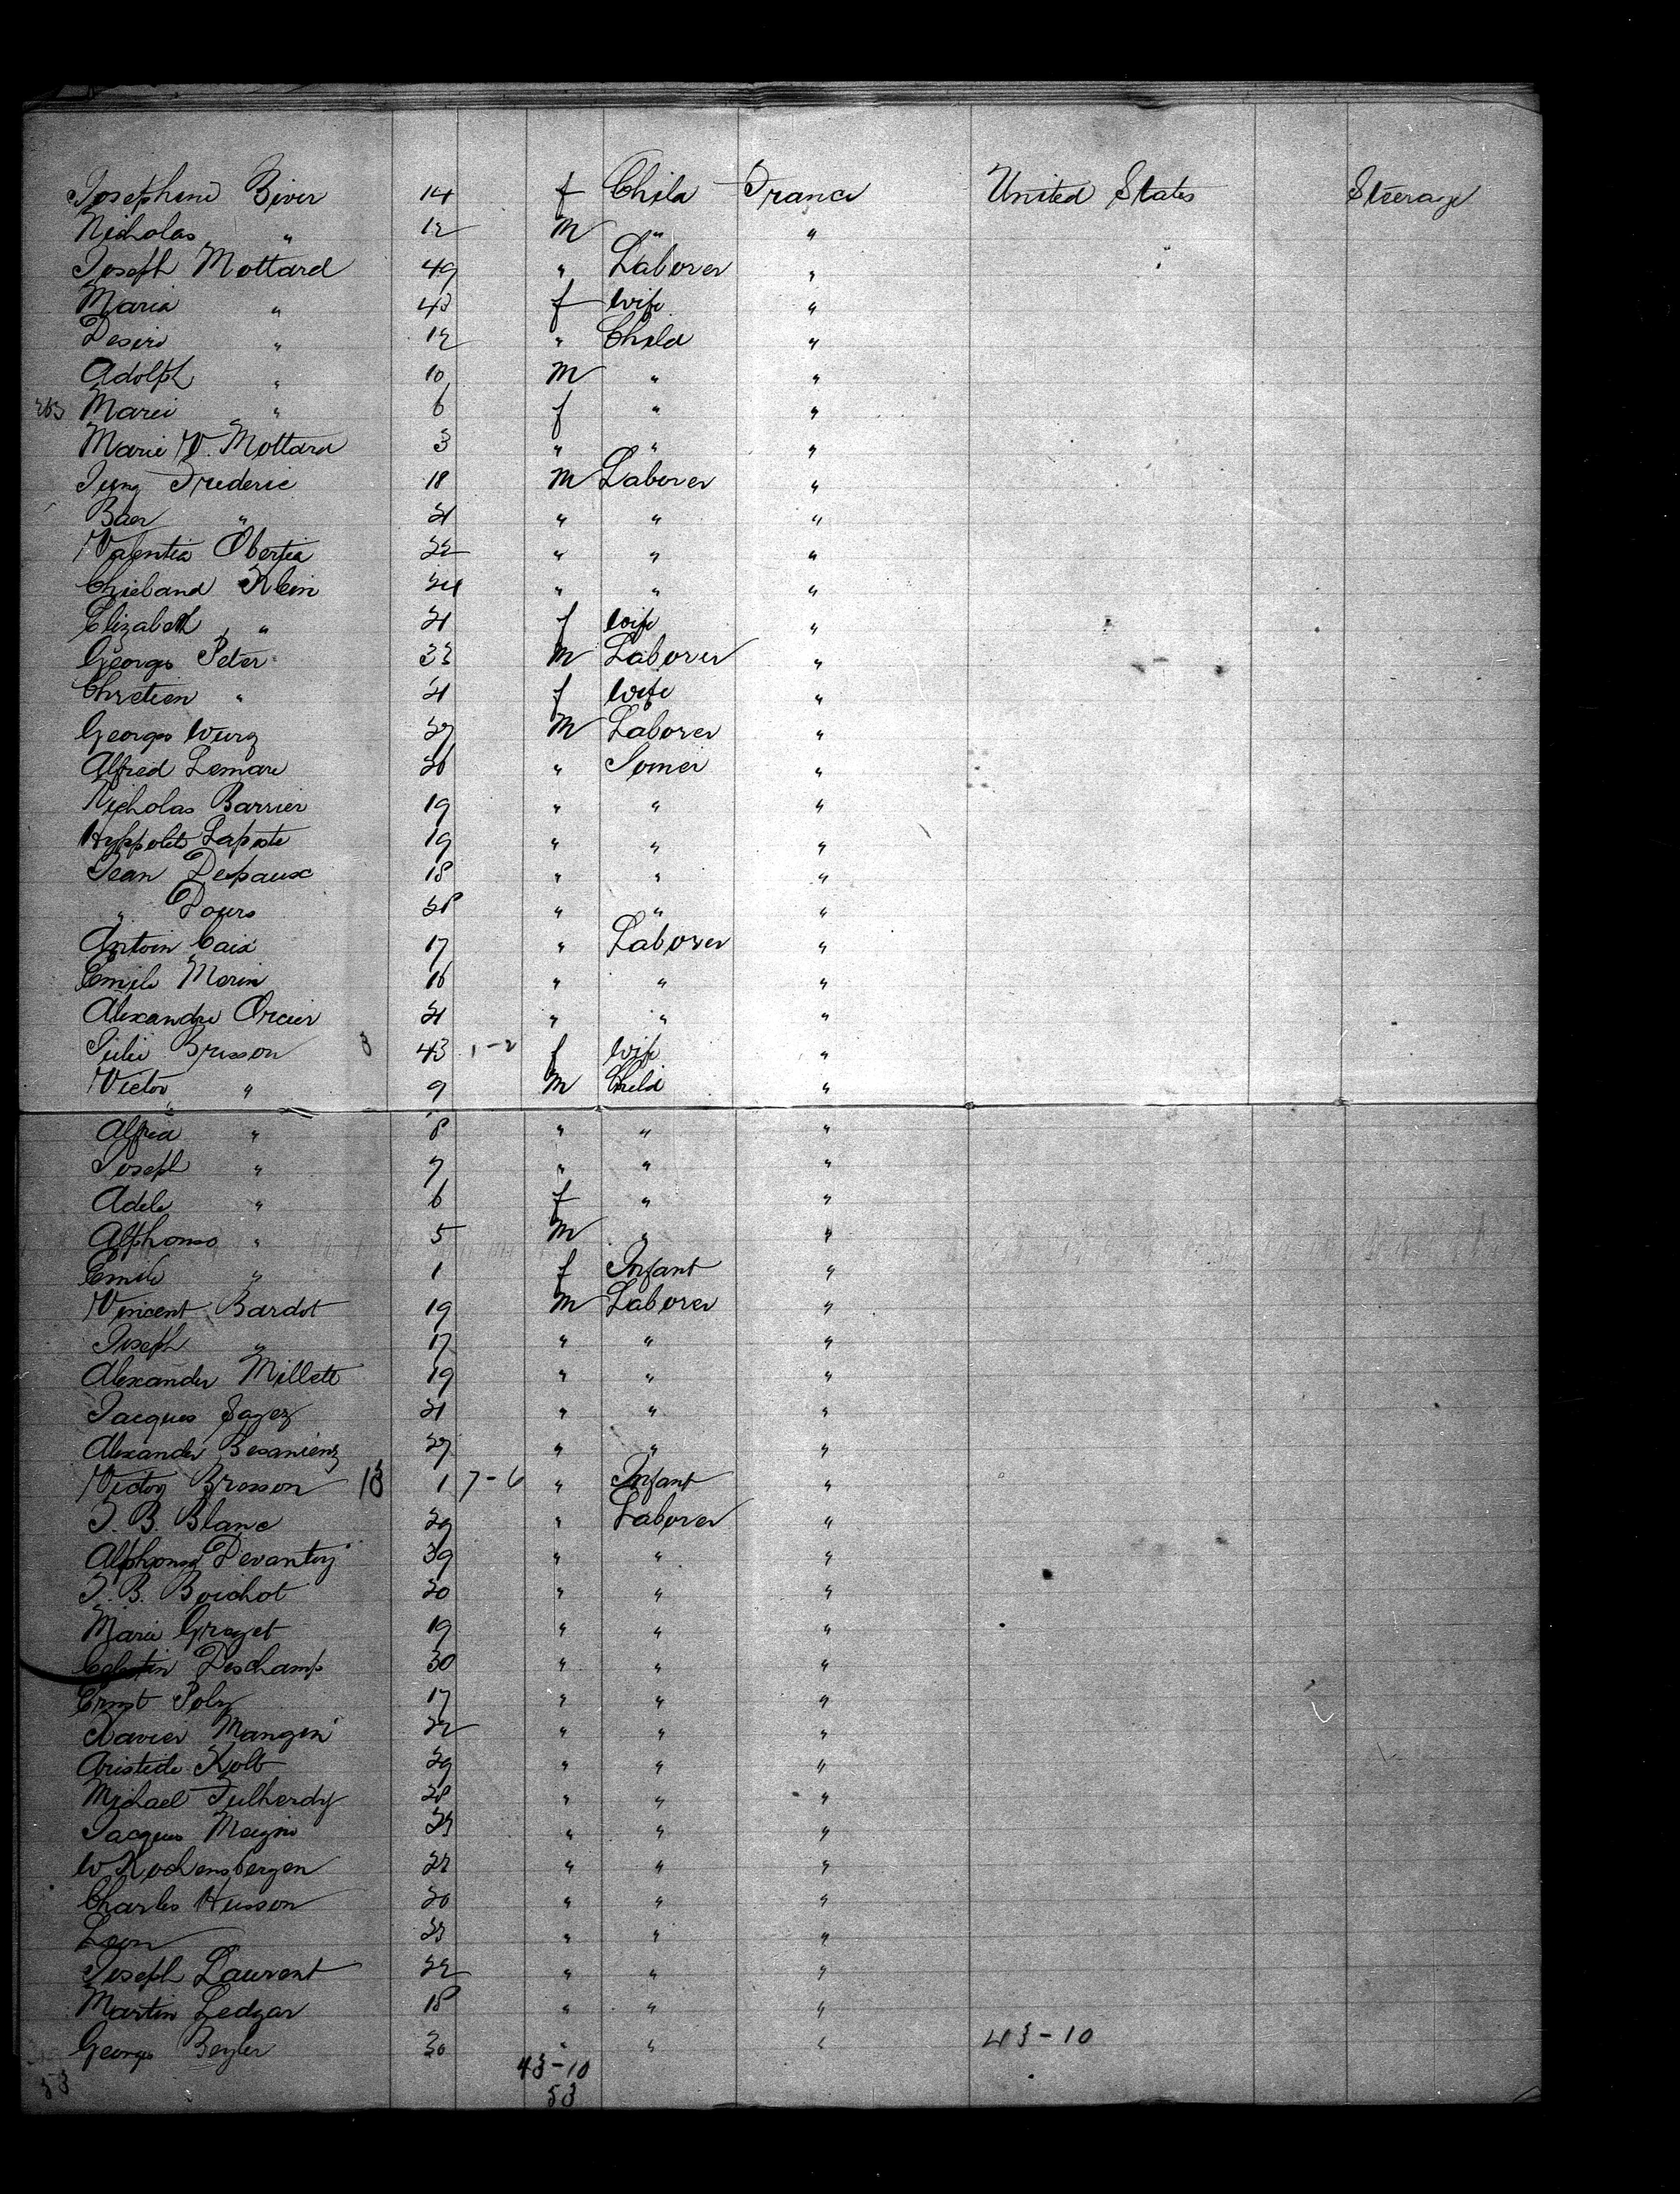 Josephine Biver 14 f Child France United States Steerage
Nicholas " 12 M " "
Joseph Mottard 49 " Laborer "
Maria " 43 f wife "
Desire " 12 " Child "
Adolph " 10 M " "
Marie " 6 f " "
Marie V. Mottard 3 " " "
Jung Frederic 18 M Laborer "
Baer " 21 " " "
Valentia Obertia 22 " " "
Klein 24 " " "
Elizabeth " 21 f wife "
George Peter 33 M Laborer "
Chretien " 21 f wife "
George Wurz 27 M Laborer "
Alfred Lemare 26 " "
Nicholas Barrier 19 " " "
Hyppolite Laposte 19 " " "
Jean Depaux 18 " " "
" Dours 28 " " "
Antoin Caix 17 " Laborer "
Emile Morin 16 " " "
Alexandre Orcier 21 " " "
Julie Brisson 3 43 1-2 f wife "
Victor " 9 M Child "
Alfred " 8 " " "
Joseph " 7 " " "
Adele " 6 f " "
Alphonso " 5 M " "
Emile " 1 f Infant "
Vincent Bardot 19 M Laborer "
Joseph " 17 " " "
Alexander Millett 19 " " "
Jacques 21 " " "
Alexander 27 " " "
Victor Brosson 13 1 7-6 " Infant "
J. B. Blanc 29 " Laborer "
Alphonse Devantoy 39 " " "
J. B. Boichot 20 " " "
Marie Groget 19 " " "
Celestin Deschamp 30 " " "
Ernst Poly 17 " " "
Xavier Mangin 22 " " "
Aristide Kolb 29 " " "
Michael 28 " " "
Jacques 23 " " "
W Kochensbergen 27 " " "
Charles Husson 20 " " "
Leon 23 " " "
Joseph Laurent 22 " " "
Martin Ledgar 18 " " "
George Beyler 30 " " " 43-10
43-10
53 53